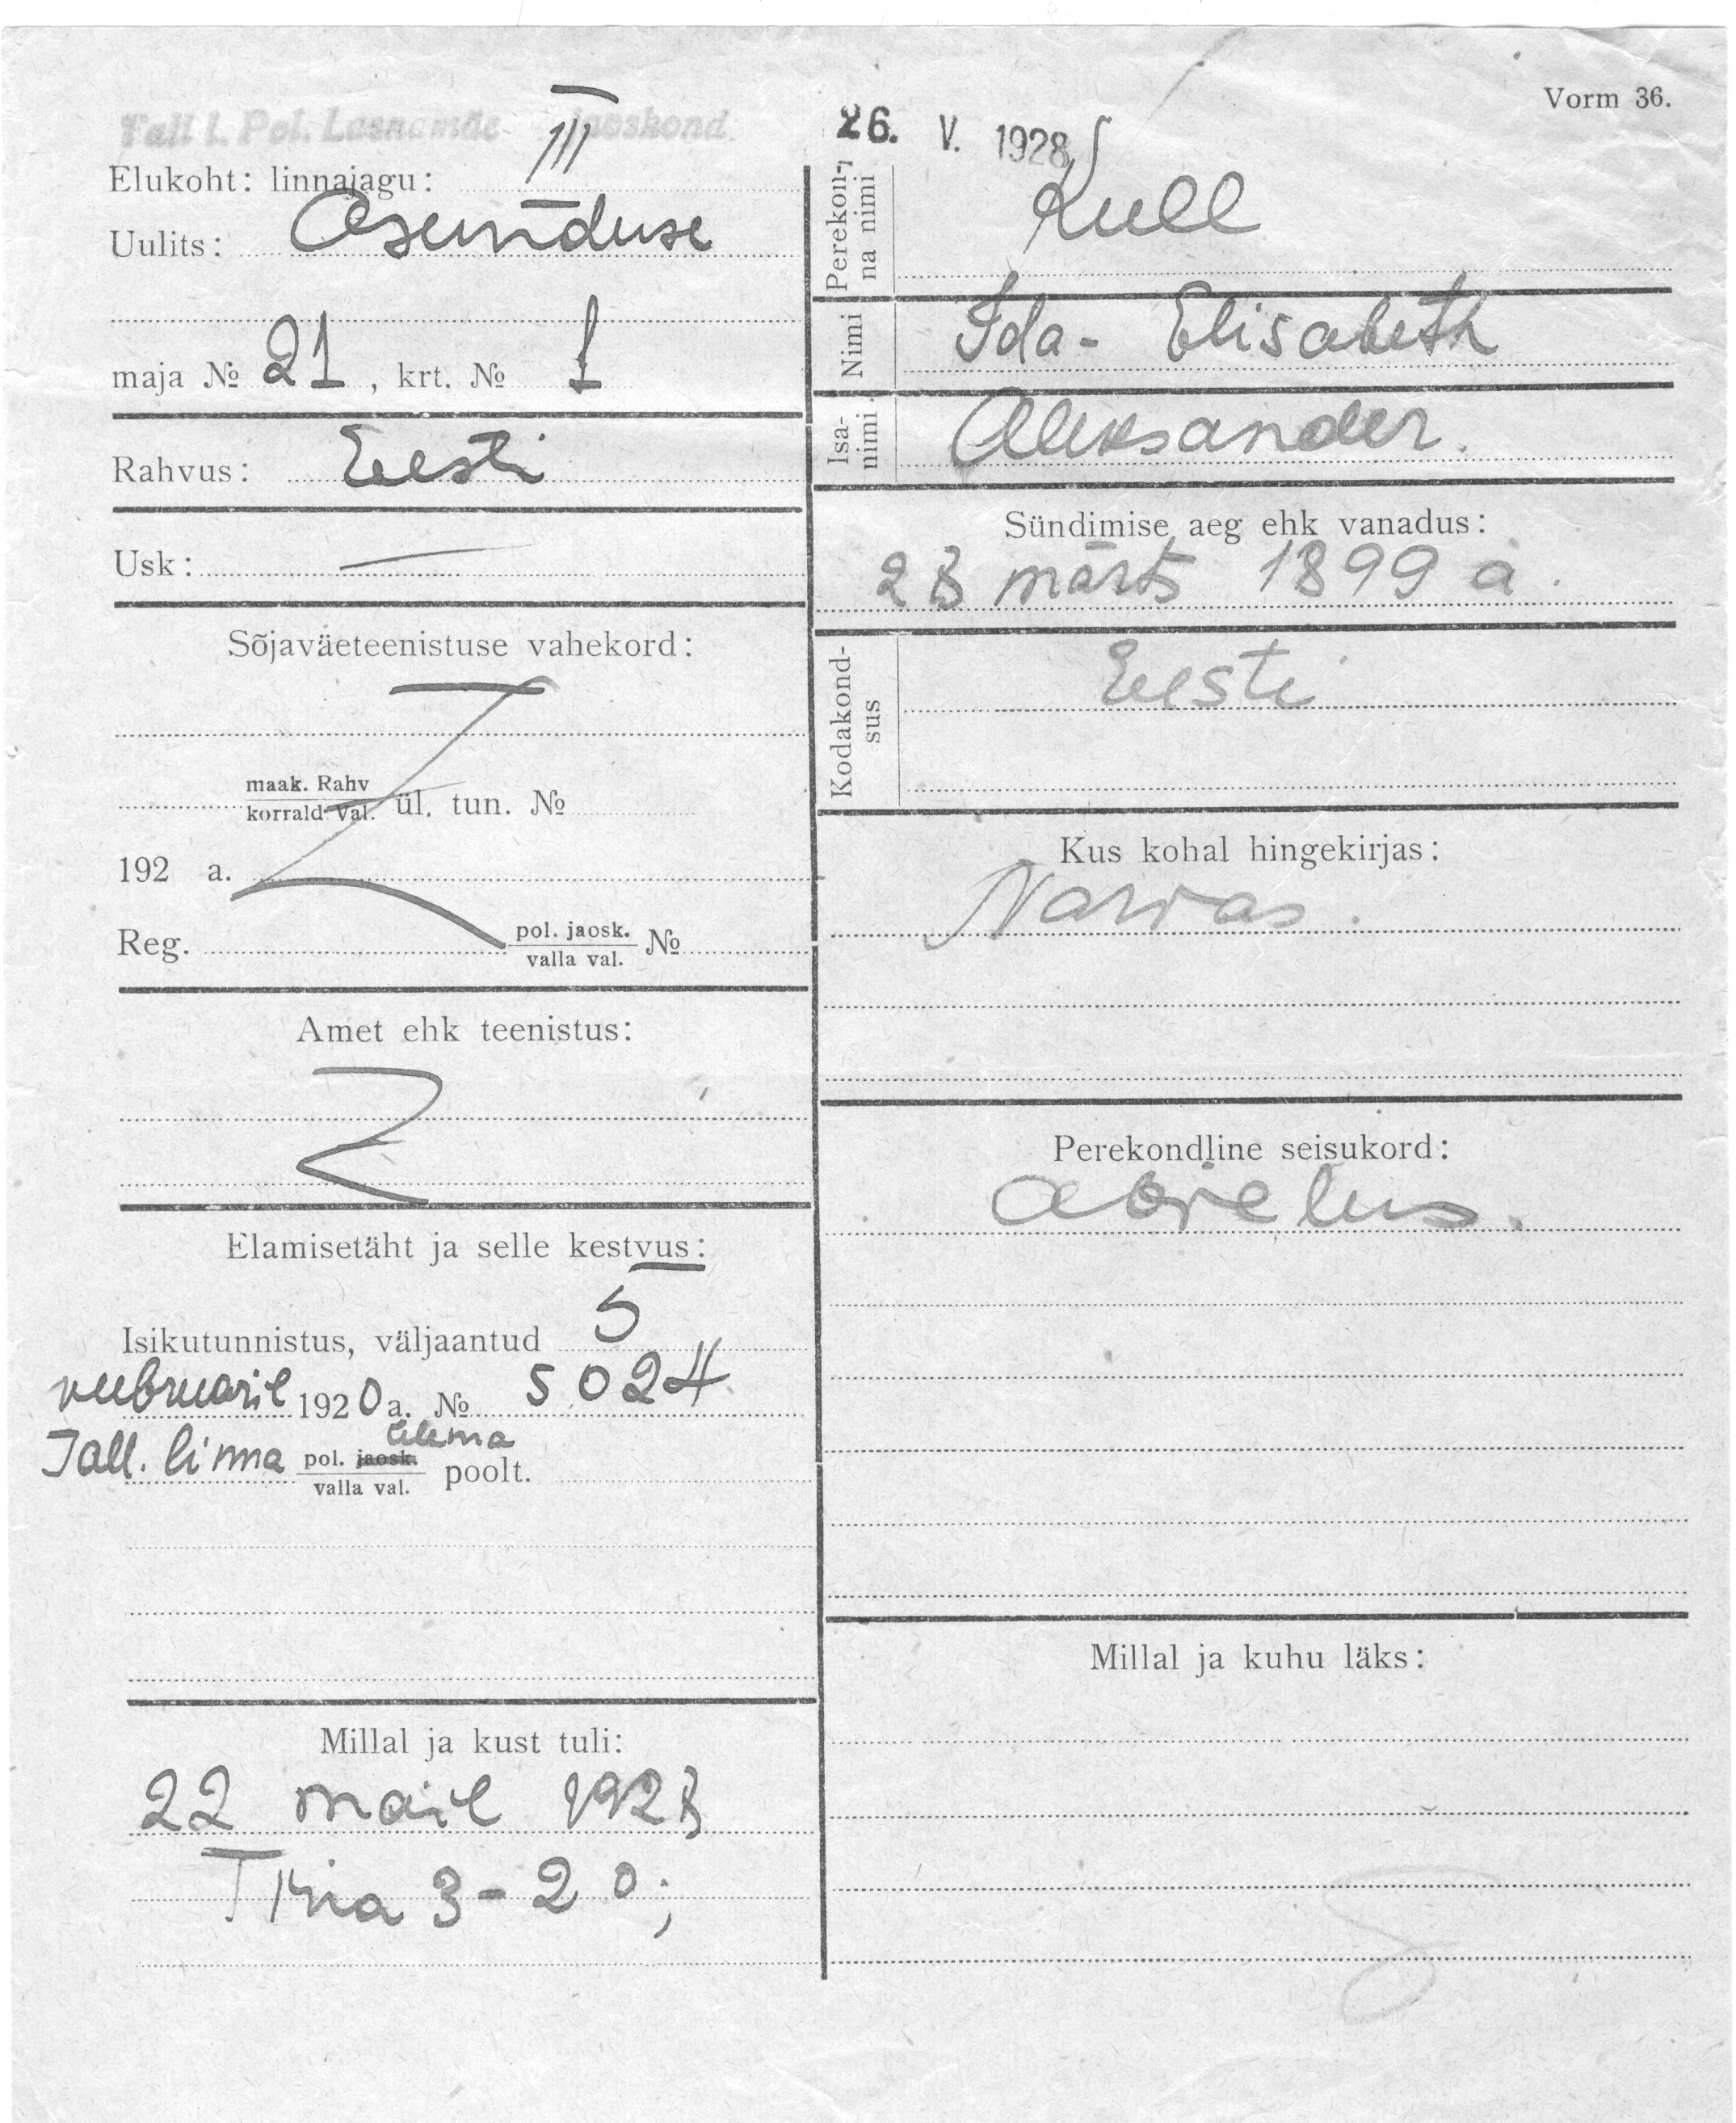 Vorm 36.
Tall l. Pol. Lasnamäe jaoskond.
III
Elukoht: linnajagu:
Uulits: Asunduse
maja № 21, krt. № 1
Rahvus: Eesti
Usk: —
Sõjaväeteenistuse vahekord:
maak. Rahv
korrald. Val. ül. tun. №
192 a.
Reg. pol. jaosk. №
valla val.
Amet ehk teenistus:
Elamisetäht ja selle kestvus:
Isikutunnistus, väljaantud 5
veebruaril 1920 a. № 5024
ülema
Tall. linna pol. jaosk. poolt.
valla val.
Millal ja kust tuli:
22 mail 1928
3-20;
26. V. 1928
Perekon-
na nimi Kull
Nimi Ida-Elisabeth
Isa-
nimi Aleksander.
Sündimise aeg ehk vanadus:
28 märts 1899 a.
Kodakond-
sus Eesti
Kus kohal hingekirjas:
Narvas.
Perekondline seisukord:
abielus.
Millal ja kuhu läks: